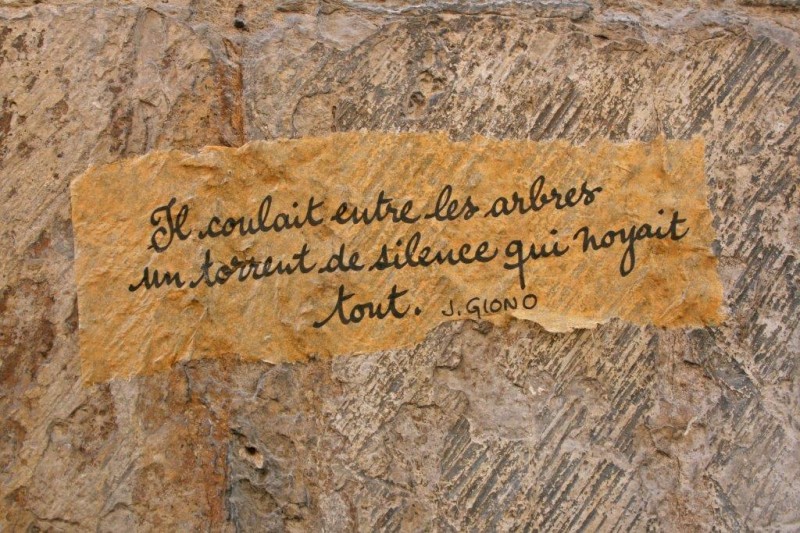 Il coulait entre les arbres
un torrent de silence qui noyait
tout. J. GIONO